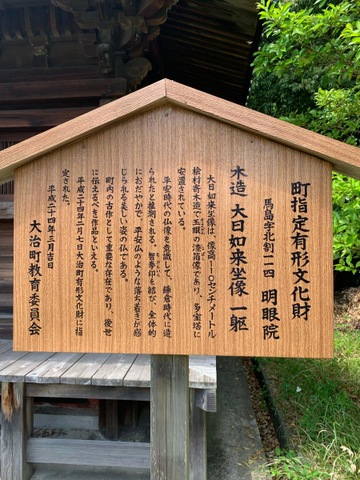 町指定有形文化財
馬島字北割一一四 明眼院
木造 大日如来坐像 一躯
大日如来坐像は、像高一一〇センチメートル
桧村寄木造で玉眼の漆箔像であり、多宝塔に
安置されている。
平安時代の仏像を意識して、鎌倉時代に造
られたと推測される。智拳印を結び、全体的
におだやかで、平安仏のような落ち着きが感
じられる美しい姿の仏である。
町内の古作として重要な存在であり、後世
に伝えるべき作品といえる。
平成二十四年二月七日大治町有形文化財に指
定された。
平成二十四年三月吉日
大治町教育委員会